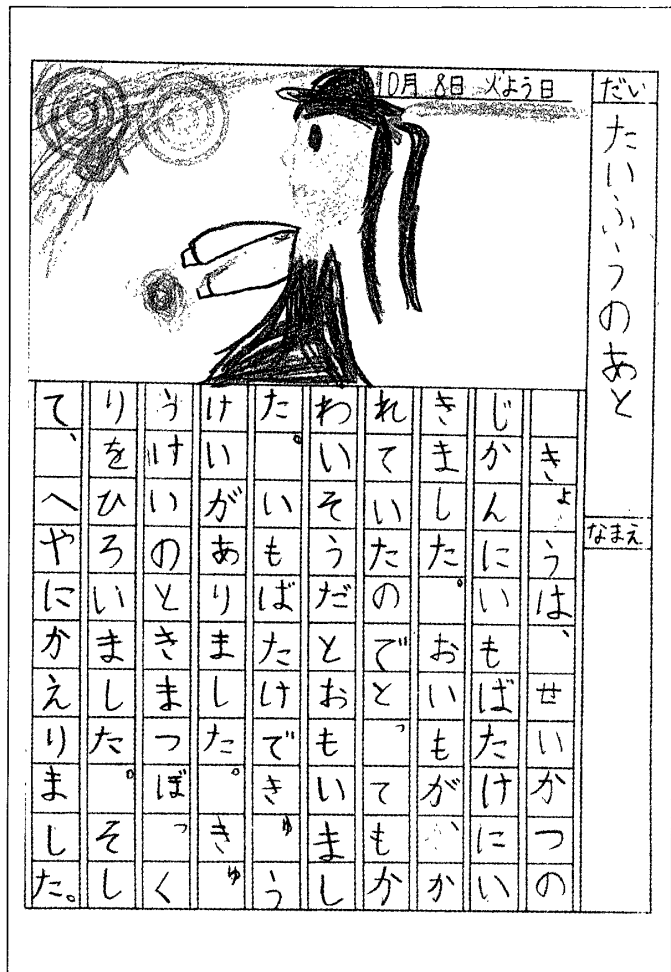 だい
たいふうのあと
なまえ
10月 8日 火よう日
きょうは、せいかつの
じかんにいもばたけにい
きました。おいもが、か
れていたのでとってもか
わいそうだとおもいまし
た。いもばたけできゅう
けいがありました。きゅ
うけいのときまつぼっく
りをひろいました。そし
て、へやにかえりました。